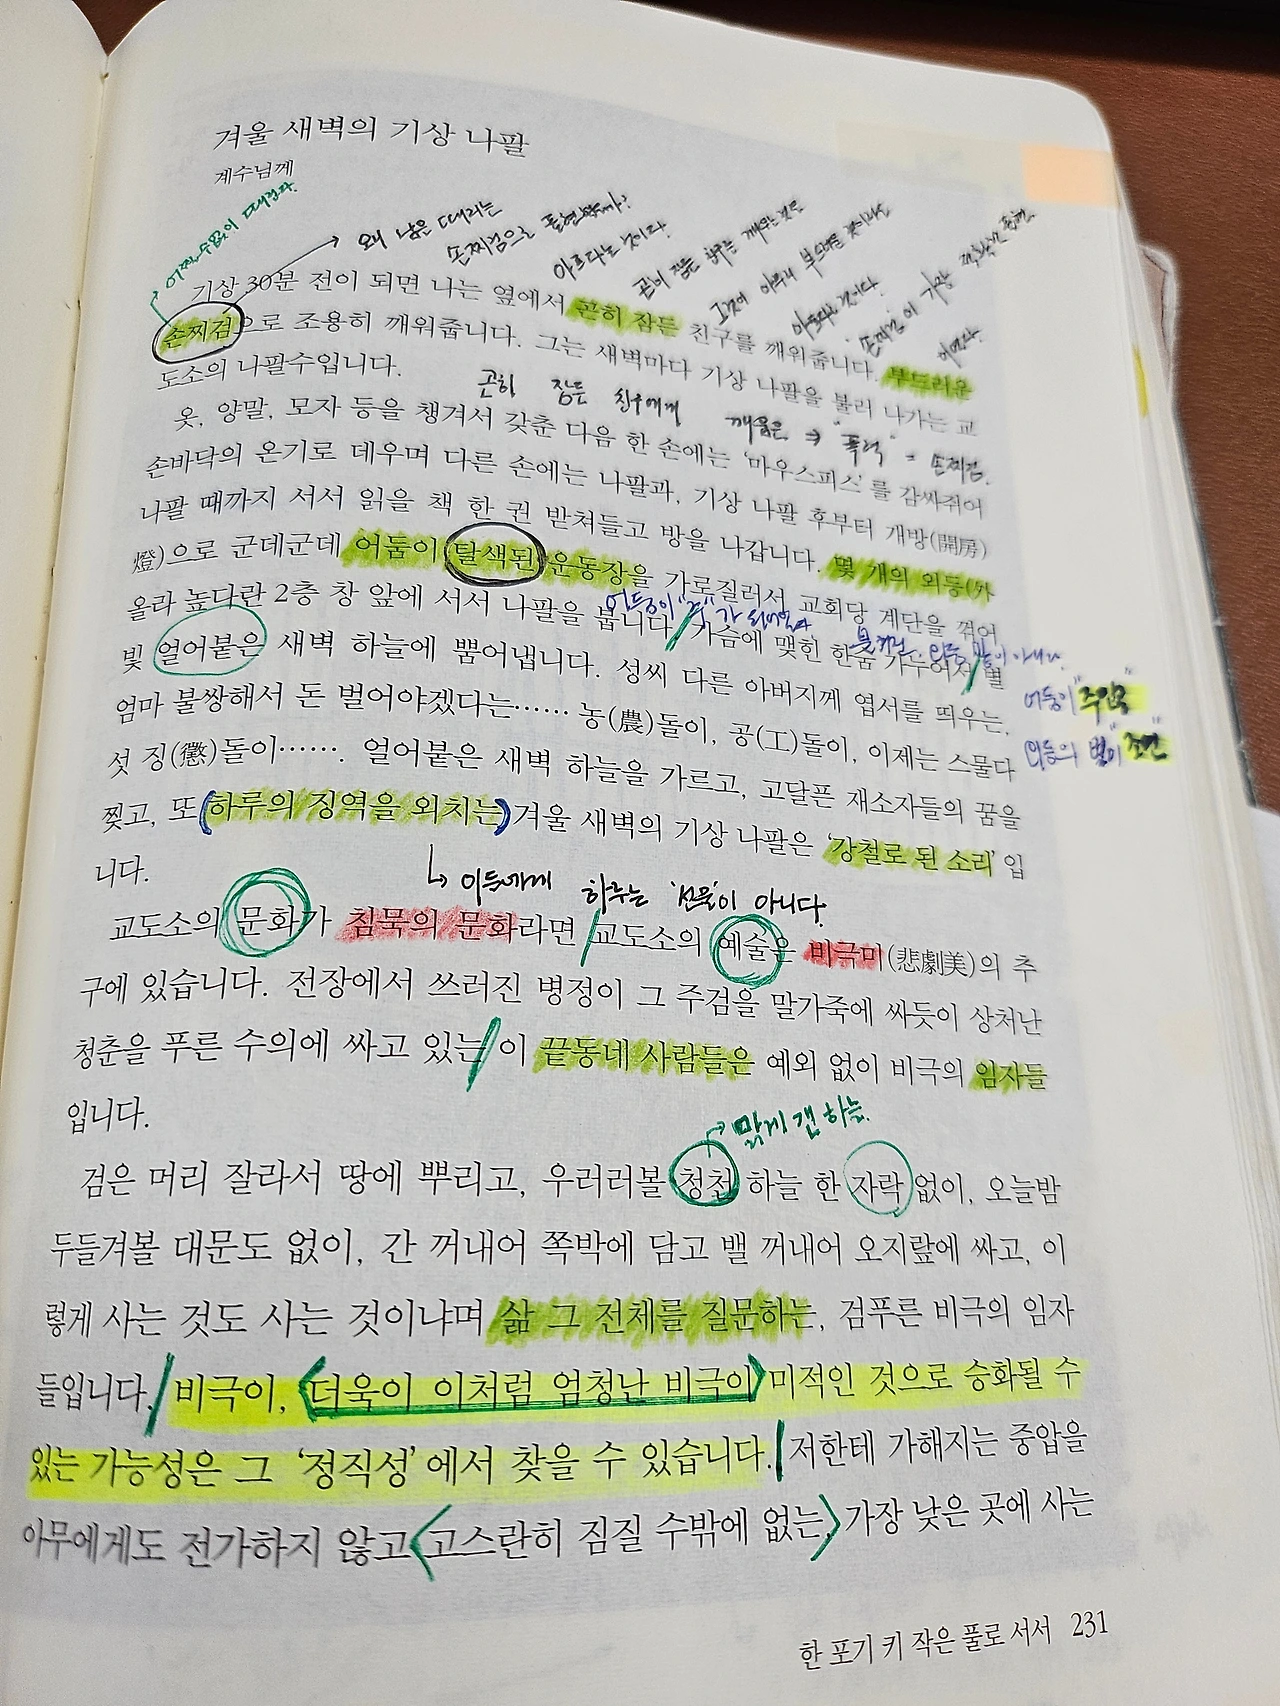 겨울 새벽의 기상 나팔
계수님께
어쩔 수 없이 때린다.
왜 남을 때리는
손찌검으로 표현했을까?
아프다는 것이다.
곤히 잠든 친구를 깨우는 것은
그것이 아무리 부드러운 것이라도
아프다는 것이다.
"손찌검"이 가장 적확한 표현
이었다.
기상 30분 전이 되면 나는 옆에서 곤히 잠든 친구를 깨워줍니다. 부드러운
손찌검으로 조용히 깨워줍니다. 그는 새벽마다 기상 나팔을 불러 나가는 교
도소의 나팔수입니다.
곤히 잠든 친구에게 깨움은 ⇒ "폭력" = 손찌검.
옷, 양말, 모자 등을 챙겨서 갖춘 다음 한 손에는 '마우스피스'를 감싸쥐어
손바닥의 온기로 데우며 다른 손에는 나팔과, 기상 나팔 후부터 개방(開房)
나팔 때까지 서서 읽을 책 한 권 받쳐들고 방을 나갑니다. 몇 개의 외등(外
燈)으로 군데군데 어둠이 탈색된 운동장을 가로질러서 교회당 계단을 꺾어
올라 높다란 2층 창 앞에 서서 나팔을 붑니다. 가슴에 맺힌 한숨 가누어서 별
어둠이 "주"가 되어있다
빛 얼어붙은 새벽 하늘에 뿜어냅니다. 성씨 다른 아버지께 엽서를 띄우는,
어둠이 "주인공"
엄마 불쌍해서 돈 벌어야겠다는…… 농(農)돌이, 공(工)돌이, 이제는 스물다
외등의 빛이 "조연"
섯 징(懲)돌이……. 얼어붙은 새벽 하늘을 가르고, 고달픈 재소자들의 꿈을
찢고, 또 하루의 징역을 외치는 겨울 새벽의 기상 나팔은 '강철로 된 소리'입
니다.
이들에게 하루는 '선물'이 아니다.
교도소의 문화가 침묵의 문화라면 교도소의 예술은 비극미(悲劇美)의 추
구에 있습니다. 전장에서 쓰러진 병정이 그 주검을 말가죽에 싸듯이 상처난
청춘을 푸른 수의에 싸고 있는 이 끝동네 사람들은 예외 없이 비극의 임자들
입니다.
맑게 갠 하늘.
검은 머리 잘라서 땅에 뿌리고, 우러러볼 청천 하늘 한 자락 없이, 오늘밤
두들겨볼 대문도 없이, 간 꺼내어 쪽박에 담고 밸 꺼내어 오지랖에 싸고, 이
렇게 사는 것도 사는 것이냐며 삶 그 전체를 질문하는, 검푸른 비극의 임자
들입니다. 비극이, 더욱이 이처럼 엄청난 비극이 미적인 것으로 승화될 수
있는 가능성은 그 '정직성'에서 찾을 수 있습니다. 저한테 가해지는 중압을
아무에게도 전가하지 않고 고스란히 짐질 수밖에 없는, 가장 낮은 곳에 사는
한 포기 키 작은 풀로 서서 231